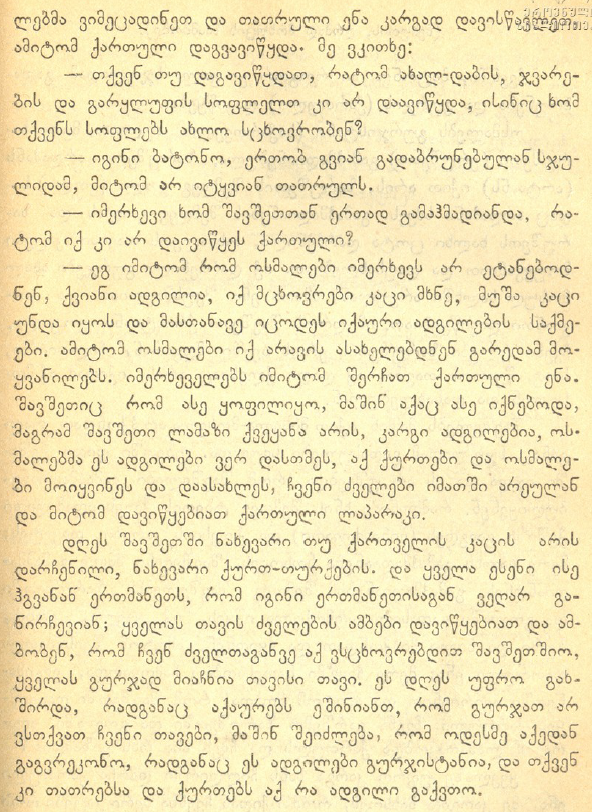 ლებმა ვიმეცადინეთ და თათრული ენა კარგად დავისწავლეთ,
ამიტომ ქართული დაგვავიწყდა. მე ვკითხე:
— თქვენ თუ დაგავიწყდათ, რატომ ახალ-დაბის, ჯვარე-
ბის და გარყლუფის სოფლელთ კი არ დაავიწყდა, ისინიც ხომ
თქვენს სოფლებს ახლო სცხოვრობენ?
— იგინი ბატონო, ერთობ გვიან გადაბრუნებულან სჯუ-
ლიდამ, მიტომ არ იტყვიან თათრულს.
— იმერხევი ხომ შავშეთთან ერთად გამაჰმადიანდა, რა-
ტომ იქ კი არ დაივიწყეს ქართული?
— ეგ იმიტომ რომ ოსმალები იმერხევს არ ეტანებოდ-
ნენ, ქვიანი ადგილია, იქ მცხოვრები კაცი მხნე, მუშა კაცი
უნდა იყოს და მასთანავე იცოდეს იქაური ადგილების საქმე-
ები. ამიტომ ოსმალები იქ არავის ასახელებდნენ გარედამ მო-
ყვანილებს. იმერხეველებს იმიტომ შერჩათ ქართული ენა.
შავშეთიც რომ ასე ყოფილიყო, მაშინ აქაც ასე იქნებოდა,
მაგრამ შავშეთი ლამაზი ქვეყანა არის, კარგი ადგილებია, ოს-
მალებმა ეს ადგილები ვერ დასთმეს, აქ ქურთები და ოსმალე-
ბი მოიყვინეს და დაასახლეს, ჩვენი ძველები იმათში არეულან
და მიტომ დავიწყებიათ ქართული ლაპარაკი.
დღეს შავშეთში ნახევარი თუ ქართველის კაცის არის
დარჩენილი, ნახევარი ქურთ-თურქების. და ყველა ესენი ისე
ჰგვანან ერთმანეთს, რომ იგინი ერთმანეთისაგან ვეღარ გა-
ნირჩევიან; ყველას თავის ძველების ამბები დავიწყებიათ და ამ-
ბობენ, რომ ჩვენ ძველთაგანვე აქ ვსცხოვრებდით შავშეთშიო,
ყველას გურჯად მიაჩნია თავისი თავი. ეს დღეს უფრო გახ-
შირდა, რადგანაც აქაურებს ეშინიანთ, რომ გურჯათ არ
ვსთქვათ ჩვენი თავები, მაშინ შეიძლება, რომ ოდესმე აქედან
გაგვრეკონო, რადგანაც ეს ადგილები გურჯისტანია, და თქვენ
კი თათრებსა და ქურთებს აქ რა ადგილი გაქვთო.